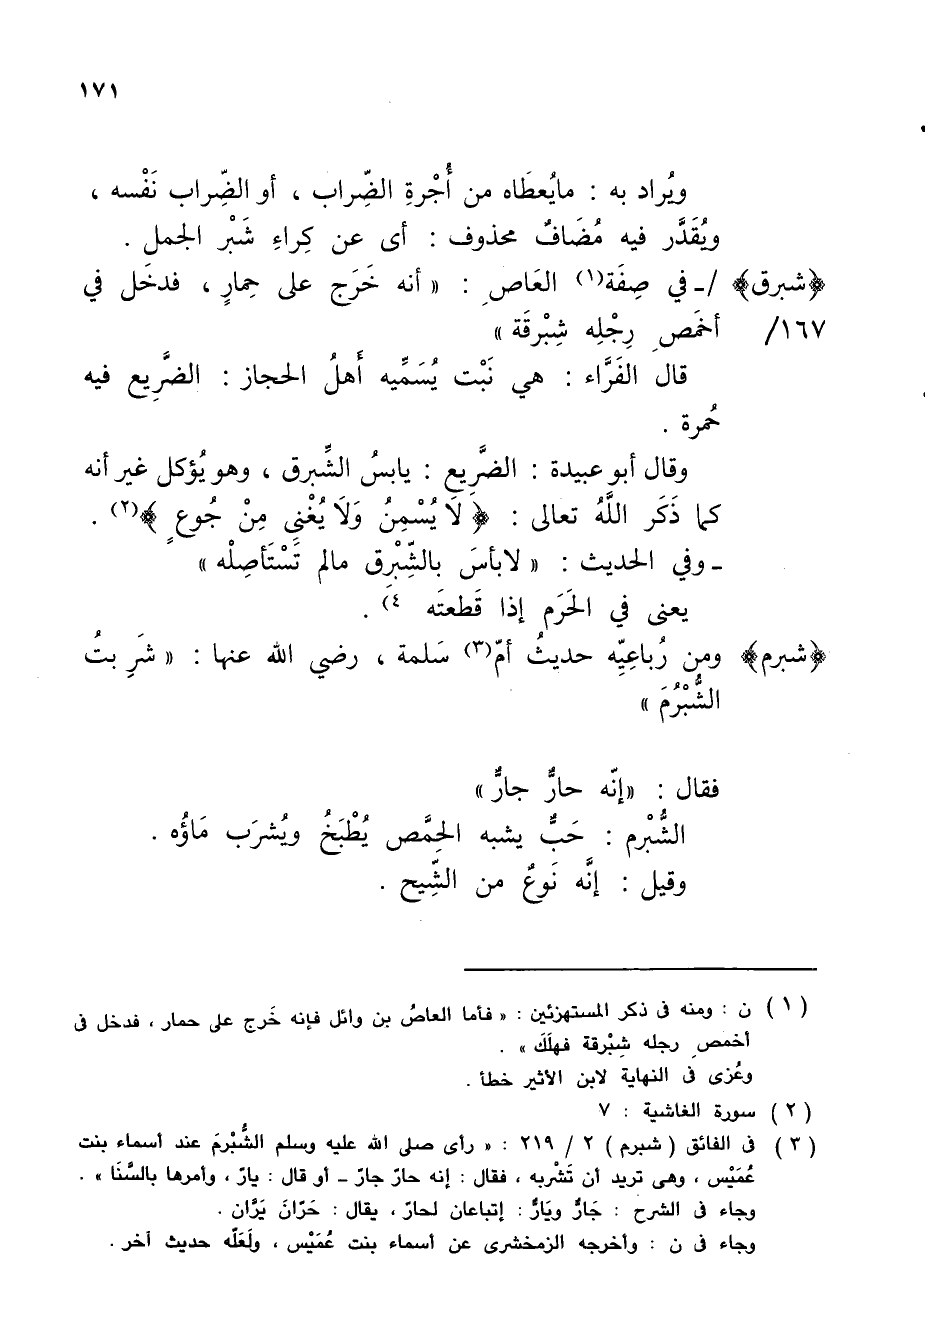 ١٧١
ويُراد به : مايُعطَاه من أُجْرةِ الضِّراب ، أو الضِّراب نَفْسه ،
ويُقَدَّر فيه مُضَافٌ محذوف : أى عن كِراءِ شَبْر الجمل .
﴿شبرق﴾ /ـ في صِفَة(١) العَاصِ : « أنه خَرَج على حِمارٍ ، فدخَل في
١٦٧/ أخمَصِ رِجْلِه شِبْرقَة »
قال الفَرَّاء : هي نَبْت يُسَمِّيه أَهلُ الحجاز : الضَّرِيع فيه
حُمرة .
وقال أبو عبيدة : الضَّرِيع : يابسُ الشِّبرق ، وهو يُؤكل غير أنه
كما ذَكَر اللَّهُ تعالى : ﴿ لَا يُسْمِنُ وَلَا يُغْنِي مِنْ جُوعٍ ﴾(٢) .
ـ وفي الحديث : « لابأسَ بالشِّبْرق مالم تَسْتَأصِلْه »
يعنى في الحَرَم إذا قَطعتَه ٤) .
﴿شبرم﴾ ومن رُباعِيِّه حديثُ أمّ(٣) سَلمة ، رضي الله عنها : « شَرِبتُ
الشُّبْرُمَ »
فقال : «إنّه حارٌّ جارٌّ »
الشُّبْرم : حَبٌّ يشبه الحِمَّص يُطْبَخُ ويُشرَب مَاؤُه .
وقيل : إنَّه نَوعٌ من الشِّيح .
(١) ن : ومنه فى ذكر المستهزئين : « فأما العاصُ بن وائل فإنه خَرج على حمار ، فدخل فى
أخمصِ رجله شِبْرقة فهلَكَ » .
وعُزى فى النهاية لابن الأثير خطأ .
(٢) سورة الغاشية : ٧
(٣) فى الفائق (شبرم) ٢ / ٢١٩ : « رأى صلى الله عليه وسلم الشُّبْرمَ عند أسماء بنت
عُمَيْس ، وهى تريد أن تَشْربه ، فقال : إنه حارّ جارّ ـ أو قال : يارّ ، وأمرها بالسَّنَا » .
وجاء فى الشرح : جَارٌّ ويَارٌّ : إتباعان لحارّ ، يقال : حَرّانَ يَرَّان .
وجاء فى ن : وأخرجه الزمخشرى عن أسماء بنت عُمَيْس ، ولَعَلّه حديث آخر .